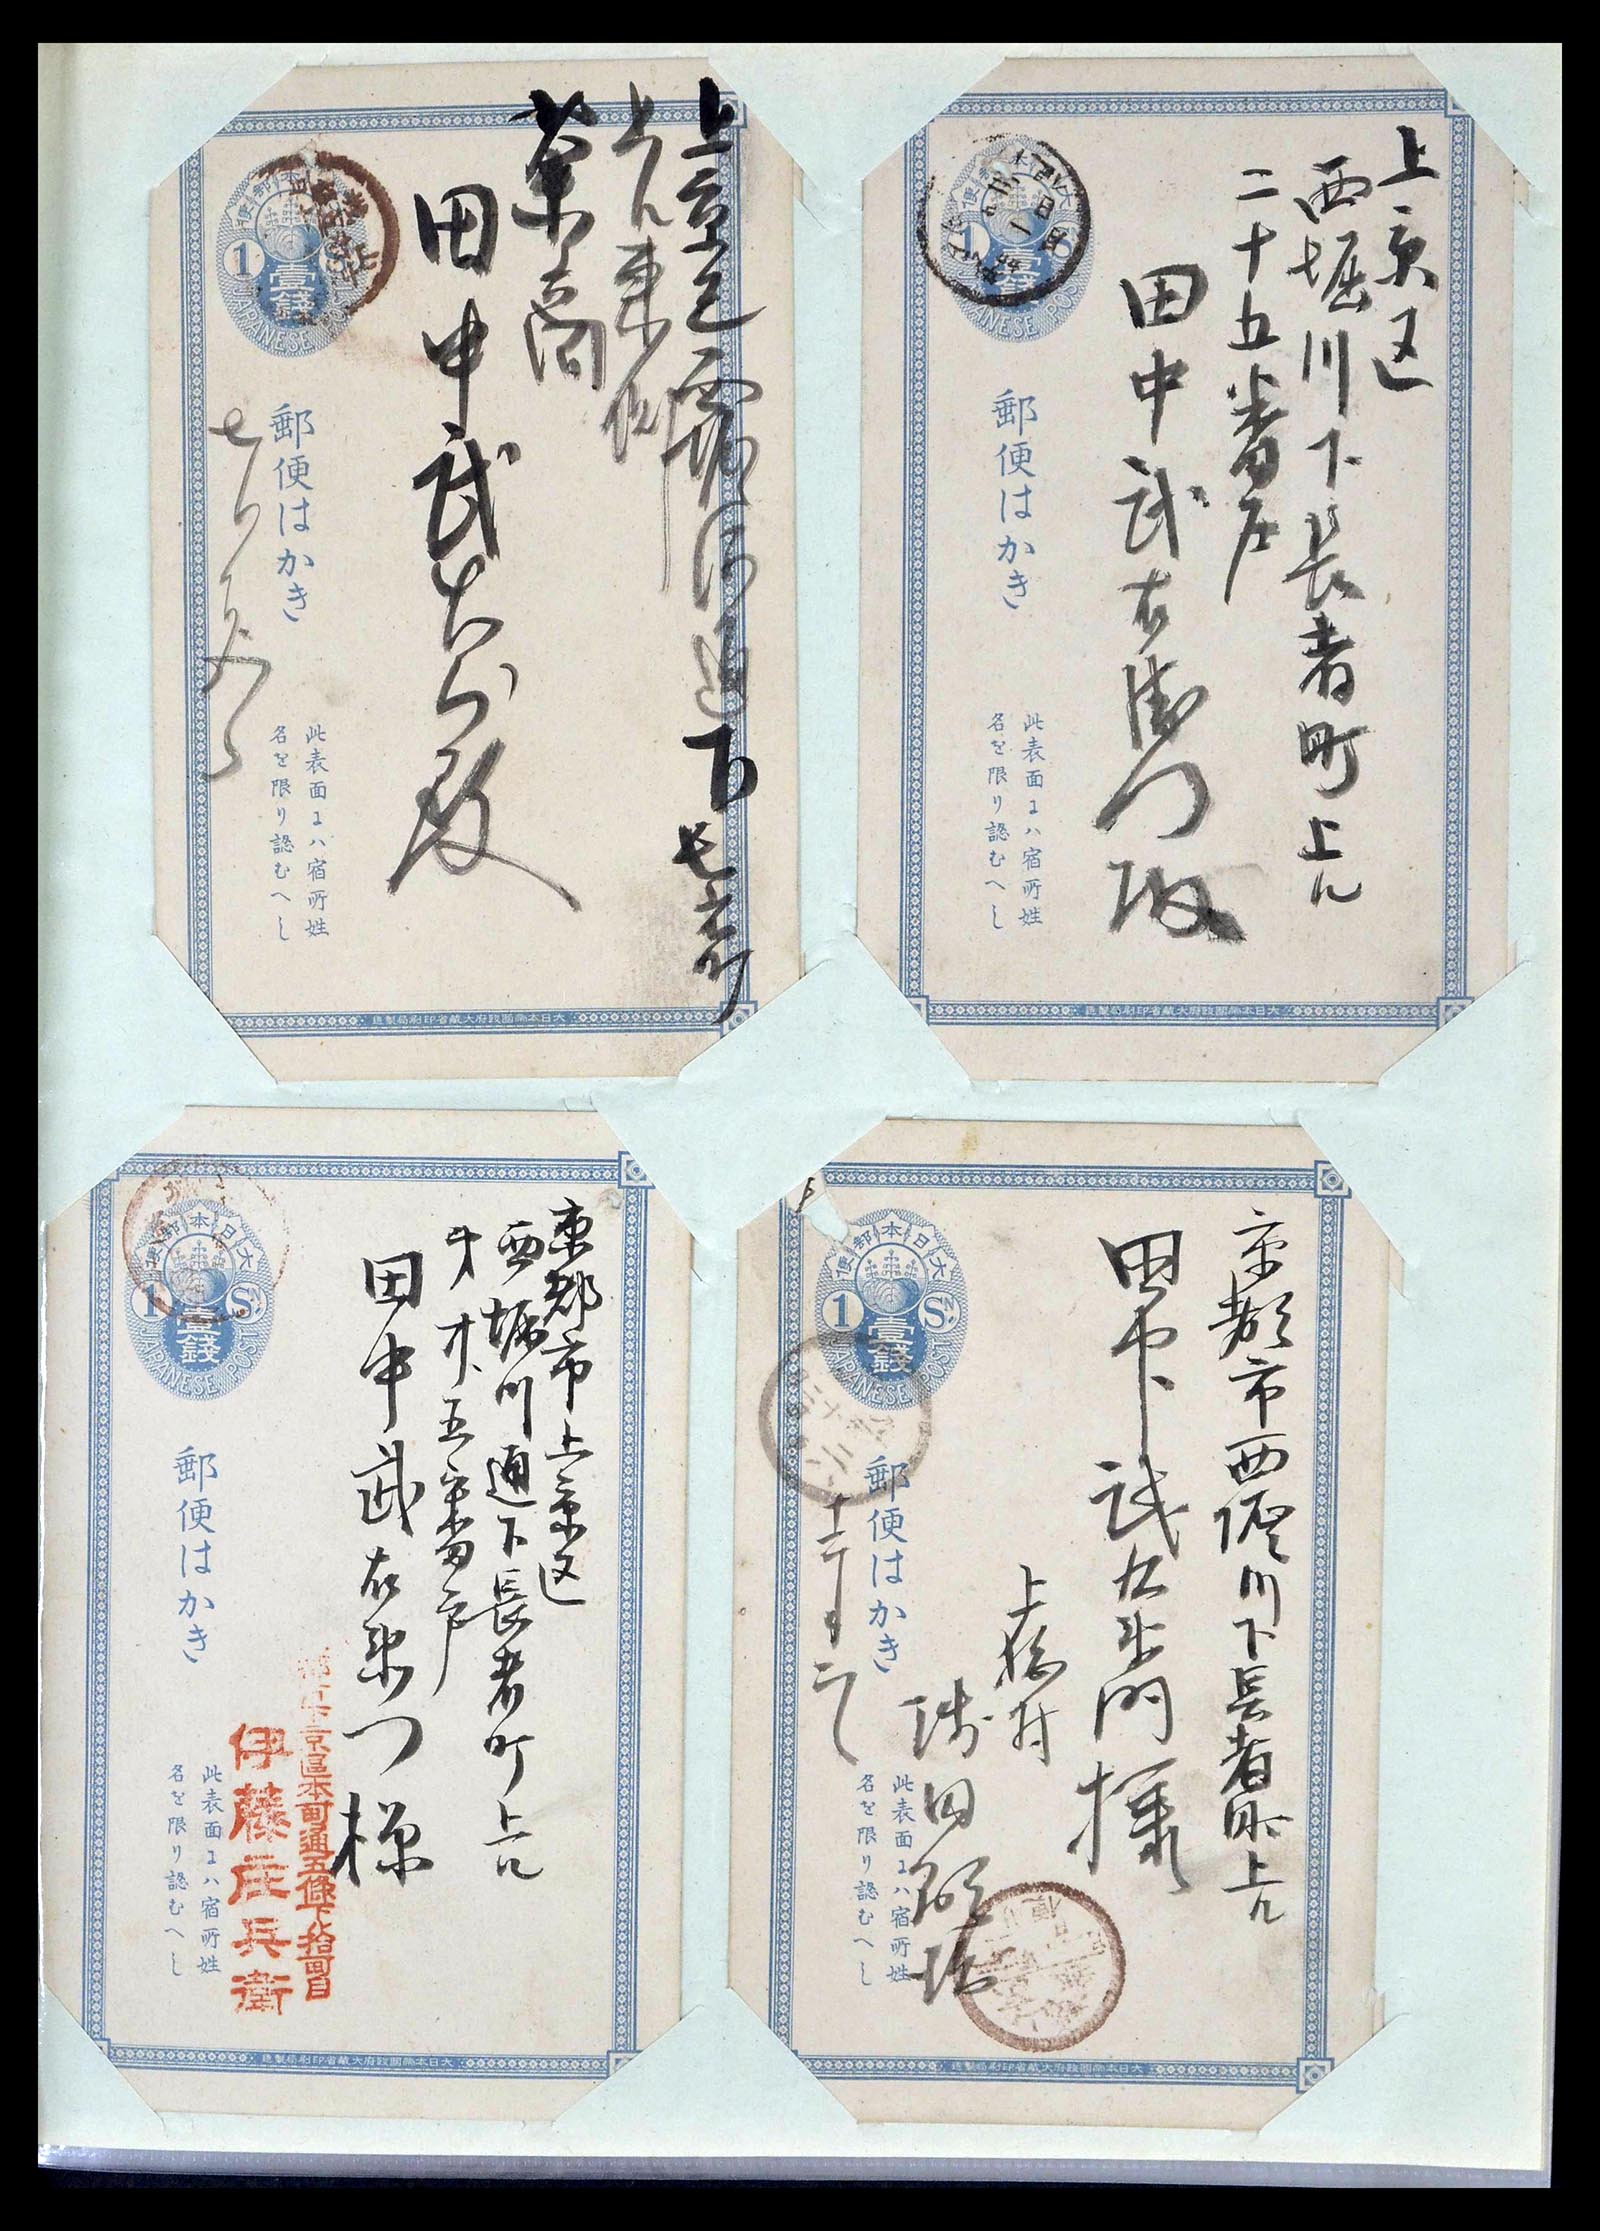 上京区西堀川通下長者町
上ル東側
薬商
田中武右衛門殿
大日本郵便
1
壹錢
JAPANESE POST
郵便はかき
此表面ニハ宿所姓
名を限り認むへし
大日本帝國政府大蔵省印刷局製造
上京区
西堀川下長者町上ル
二十五番戸
田中武右衛門殿
大日本郵便
1 Sɴ
壹錢
JAPANESE POST
郵便はかき
此表面ニハ宿所姓
名を限り認むへし
大日本帝國政府大蔵省印刷局製造
京都市上京区
西堀川通下長者町上ル
廿五番戸
田中武右衛門様
京區本町通五條下ル拾町目
伊藤庄兵衛
大日本郵便
1 Sɴ
壹錢
JAPANESE POST
郵便はかき
此表面ニハ宿所姓
名を限り認むへし
大日本帝國政府大蔵省印刷局製造
京都市西堀川下長者町上ル
田中武右衛門様
大日本郵便
1 Sɴ
壹錢
JAPANESE POST
郵便はかき
此表面ニハ宿所姓
名を限り認むへし
大日本帝國政府大蔵省印刷局製造